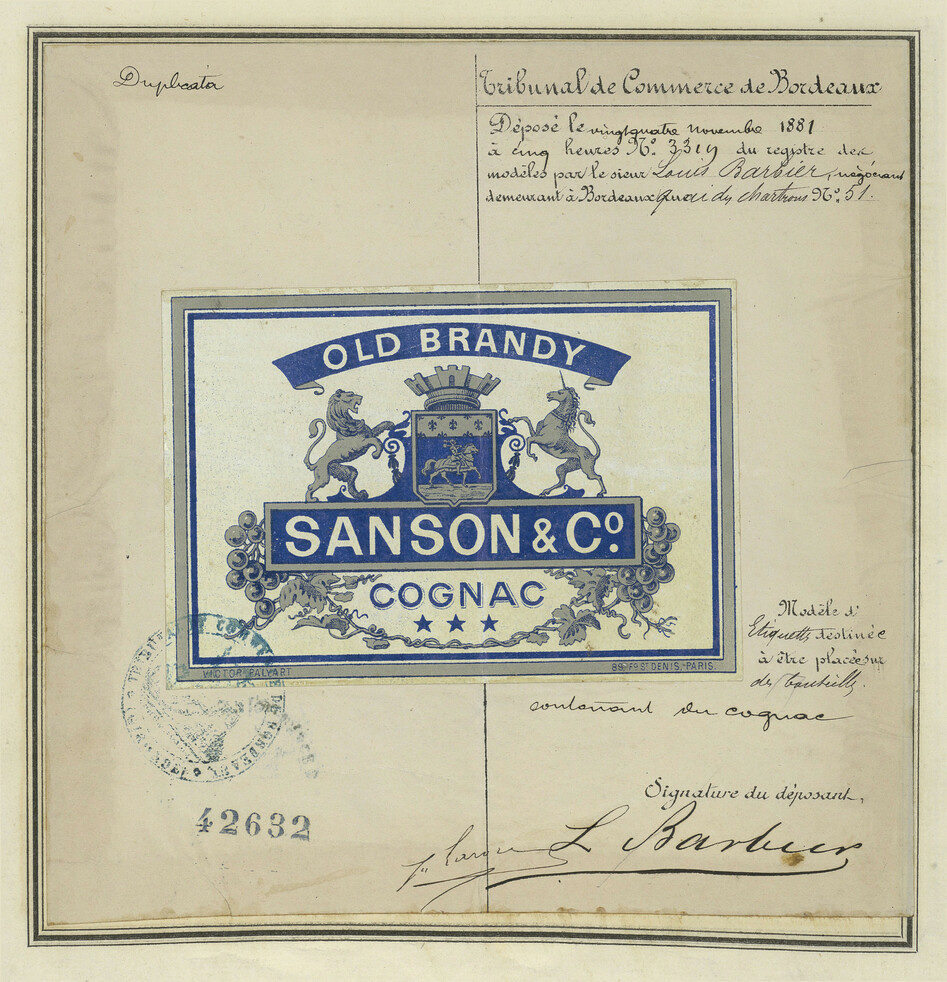 Duplicata
Tribunal de Commerce de Bordeaux
Déposé le vingtquatre novembre 1881
à cinq heures No. 3319 du registre des
modèles par le sieur Louis Barbier, négociant
demeurant à Bordeaux quai des chartrons No. 51.
OLD BRANDY
SANSON & Co.
COGNAC
VICTOR PALYART
88, Fg St DENIS, PARIS.
Modèle d'
Etiquette destinée
à être placée sur
des bouteilles
contenant du cognac
TRIBUNAL DE COMMERCE DE BORDEAUX
42632
Signature du déposant,
L Barbier